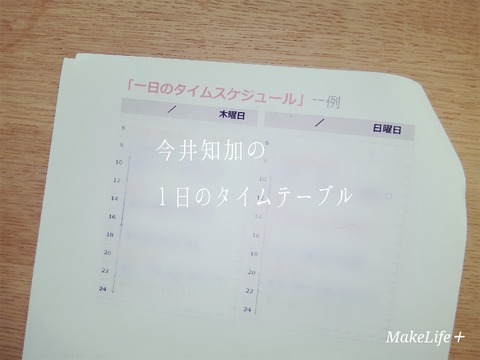 「一日のタイムスケジュール」一例
/ 木曜日 / 日曜日
6 6
8 8
10 10
今井知加の
12 12
1日のタイムテーブル
14 14
16 16
18 18
20 20
22 22
24 24
MakeLife+